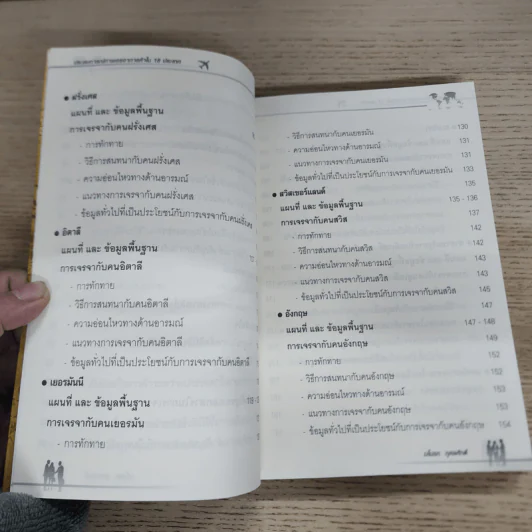 ● ฝรั่งเศส
แผนที่ และ ข้อมูลพื้นฐาน
การเจรจากับคนฝรั่งเศส
- การทักทาย
- วิธีการสนทนากับคนฝรั่งเศส
- ความอ่อนไหวทางด้านอารมณ์
- แนวทางการเจรจากับคนฝรั่งเศส
- ข้อมูลทั่วไปที่เป็นประโยชน์กับการเจรจากับคนฝรั่งเศส
● อิตาลี
แผนที่ และ ข้อมูลพื้นฐาน
การเจรจากับคนอิตาลี
- การทักทาย
- วิธีการสนทนากับคนอิตาลี
- ความอ่อนไหวทางด้านอารมณ์
- แนวทางการเจรจากับคนอิตาลี
- ข้อมูลทั่วไปที่เป็นประโยชน์กับการเจรจากับคนอิตาลี
● เยอรมันนี
แผนที่ และ ข้อมูลพื้นฐาน
การเจรจากับคนเยอรมัน
- การทักทาย
- วิธีการสนทนากับคนเยอรมัน 130
- ความอ่อนไหวทางด้านอารมณ์ 131
- แนวทางการเจรจากับคนเยอรมัน 131
- ข้อมูลทั่วไปที่เป็นประโยชน์กับการเจรจากับคนเยอรมัน 133
● สวิสเซอร์แลนด์ 135
แผนที่ และ ข้อมูลพื้นฐาน 135 - 136
การเจรจากับคนสวิส 137
- การทักทาย 142
- วิธีการสนทนากับคนสวิส 142
- ความอ่อนไหวทางด้านอารมณ์ 143
- แนวทางการเจรจากับคนสวิส 143
- ข้อมูลทั่วไปที่เป็นประโยชน์กับการเจรจากับคนสวิส 145
● อังกฤษ 147
แผนที่ และ ข้อมูลพื้นฐาน 147 - 148
การเจรจากับคนอังกฤษ 149
- การทักทาย 152
- วิธีการสนทนากับคนอังกฤษ 152
- ความอ่อนไหวทางด้านอารมณ์ 153
- แนวทางการเจรจากับคนอังกฤษ 153
- ข้อมูลทั่วไปที่เป็นประโยชน์กับการเจรจากับคนอังกฤษ 154